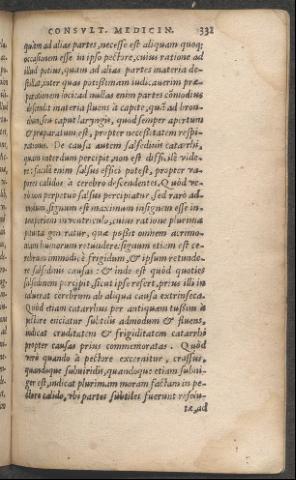 CONSVLT. MEDICIN. 331
quàm ad alias partes, necesse est aliquam quoq;
occasionem esse in ipso pectore, cuius ratione ad
illud potius, quàm ad alias partes materia de-
stillat, inter quas potissimam iudicauerim præ-
parationem loci: ad nullas enim partes cõmodius
descendit materia fluens à capite, quàm ad bron-
chum, seu caput laryngis, quod semper apertum
& præparatum est, propter necessitatem respi-
rationis. De causa autem salsedinis catarrhi,
quam interdum percipit, non est difficile vide-
re: facilè enim salsus effici potest, propter va-
pores calidos à cerebro descendentes. Quòd ve-
rò non perpetuò salsus percipiatur, sed rarò ad-
modum, signum est maximum insignem esse in-
temperiem in ventriculo, cuius ratione plurima
pituita generatur, quæ possit omnem acrimo-
niam humorum retundere: signum etiam est ce-
rebrum immodicè frigidum, & ipsum retunde-
re salsedinis causas: & inde est quòd quoties
salsedinem percipit, sicut ipse refert, prius illi in-
caluerat cerebrum ab aliqua causa extrinseca.
Quòd etiam catarrhus per antiquam tussim in
pectore eniciatur subtilis admodum & fluens,
indicat cruditatem & frigiditatem catarrhi
propter causas prius commemoratas. Quòd
verò quando à pectore excernitur, crassus,
quandoque subuiridis, quandoque etiam subni-
ger est, indicat plurimam moram factam in pe-
ctore calido, vbi partes subtiles fuerunt resolu-
tæ, ad